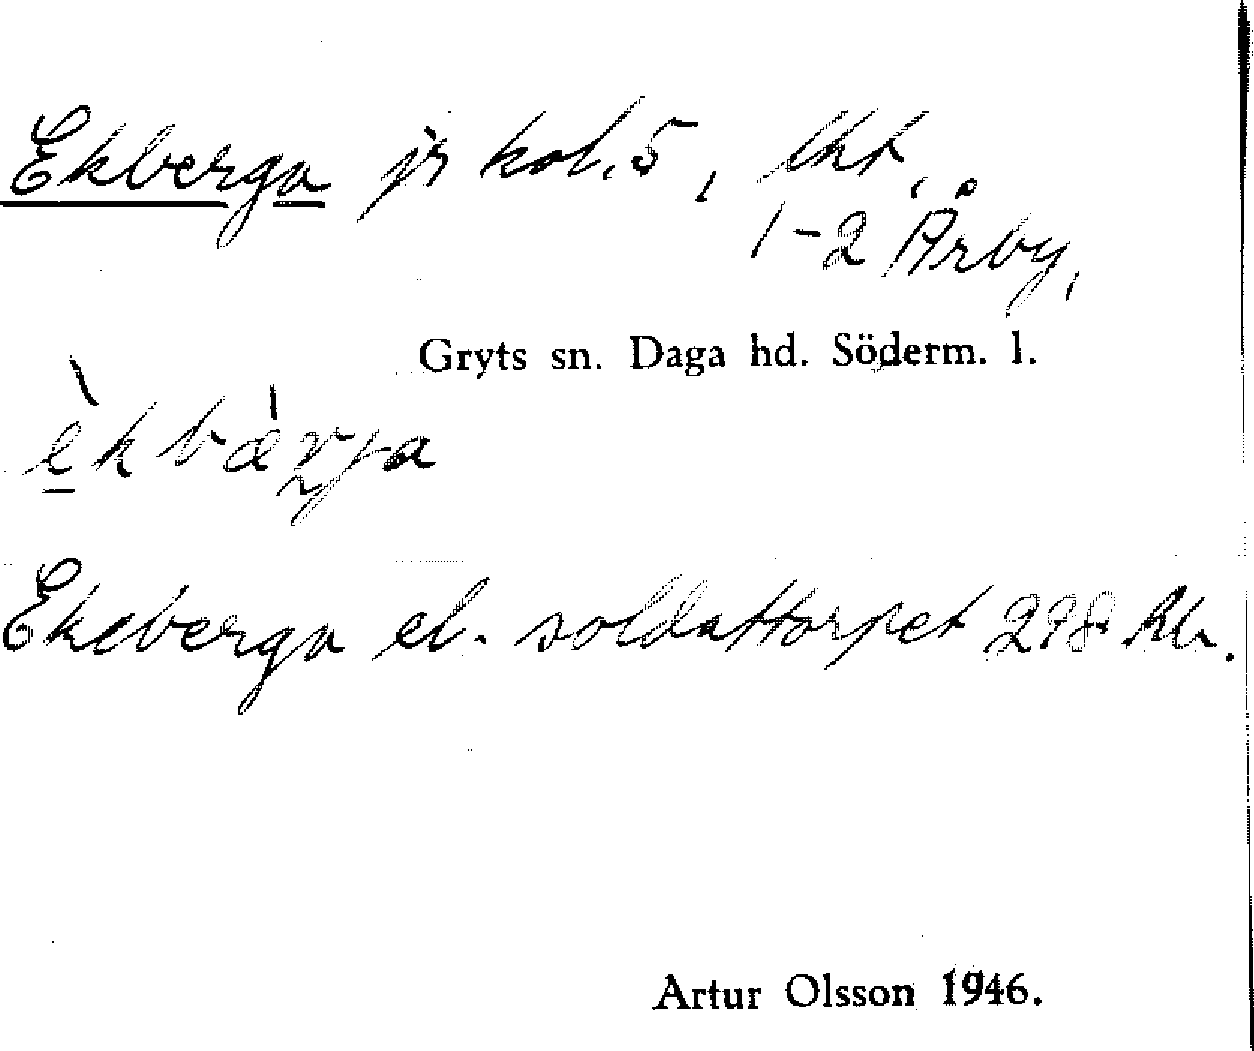 Ekberga jr kol. 5, lht,
1-2 Årby,
Gryts sn. Daga hd. Söderm. l.
Ekeberga el. soldattorpet 298 Rk.
Artur Olsson 1946.